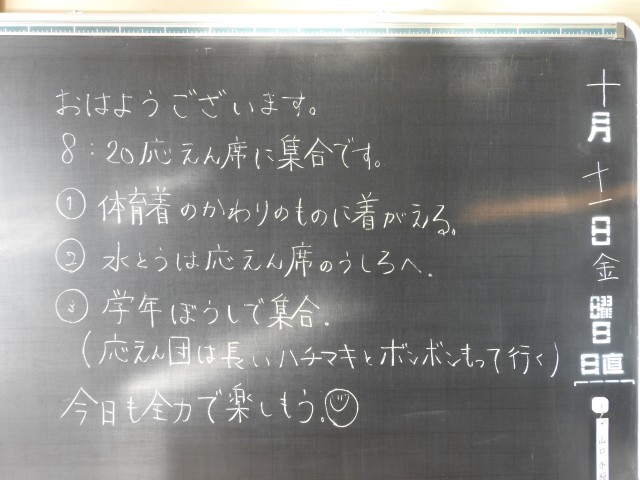 おはようございます。
8:20応えん席に集合です。
① 体育着のかわりのものに着がえる。
② 水とうは応えん席のうしろへ.
③ 学年ぼうしで集合.
(応えん団は長いハチマキとボンボンもって行く)
今日も全力で楽しもう.
十月十一日金曜日
日直